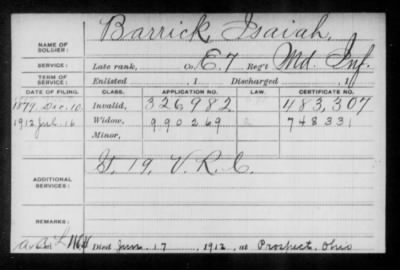 NAME OF SOLDIER: Barrick, Isaiah.
SERVICE: Late rank, Co. E. 7 Reg't Md. Inf.
TERM OF SERVICE: Enlisted , 1 Discharged , 1
DATE OF FILING. CLASS. APPLICATION NO. LAW. CERTIFICATE NO.
1879. Dec. 10. Invalid, 326982 483,307
1912 16 Widow, 990269 748331
Minor,
ADDITIONAL SERVICES: 19, V. R. C.
REMARKS:
Died 17, 1912, at Prospect, Ohio